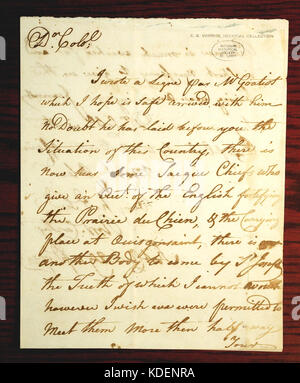 Dr Colo!
I wrote a Ligne Par Mr Gratiot
which I hope is Safe arrived with him
no Doubt he has laid before you the
Situation of the Country, there is
now hear Some Sacque Chiefs who
give an Acct. of the English fortifying
the Prairie du Chien, & the Carrying
place at Ouisconsaint, there is
another Body to come by St Joseph
the Truth of which I cannot
however I wish we were permitted to
Meet them More then half way
Your
alamy
Image ID: KDENRA
www.alamy.com